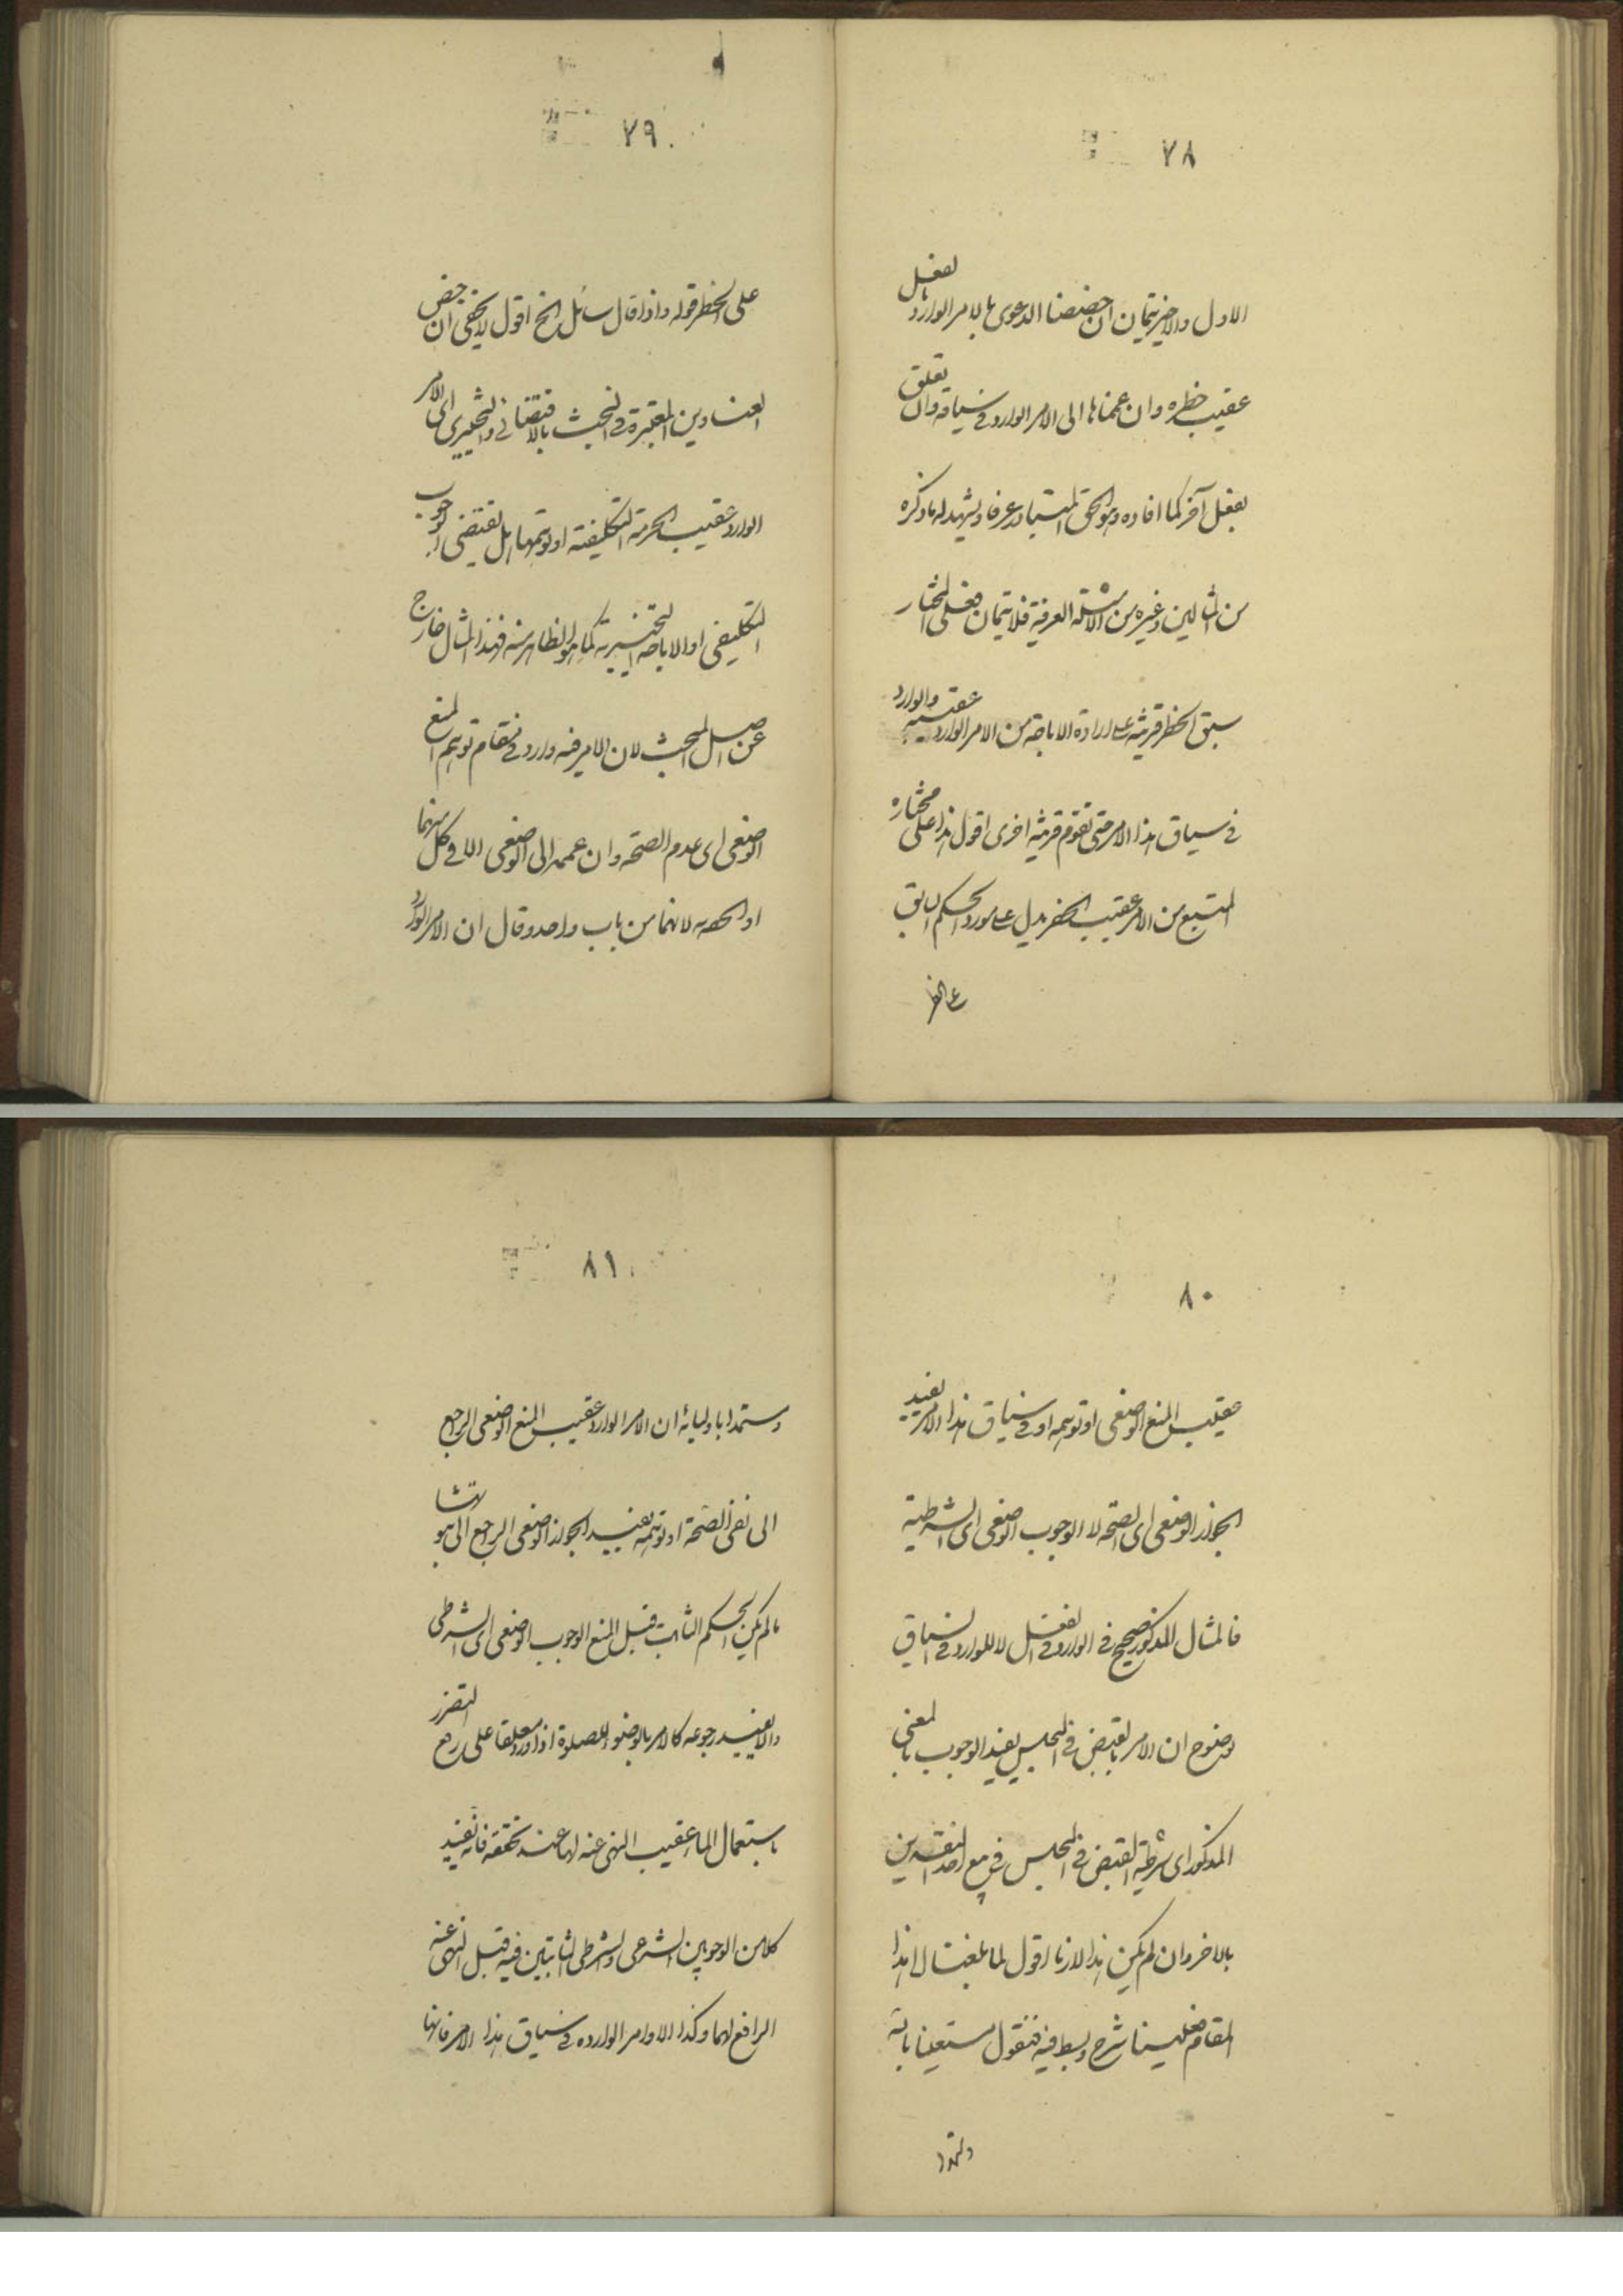 ٧٨
الاول والاخير يتمان ان خصصنا الدعوى بالامر الوارد بفعل
عقيب حظره وان عممناها الى الامر الوارد في سياقه وان تعلق
بفعل آخر كما افاده وهو الحق المتبادر عرفا ويشهد له ما ذكره
من المثالين وغيره من الامثلة العرفية فلا يتمان فعلى المختار
سبق الحظر قرينة على ارادة الاباحة من الامر الوارد عقيبه والوارد
في سياق هذا الامر حتى تقوم قرينة اخرى اقول هذا على مختاره
المتبع من الامر عقيب الحظر يدل على مورد الحكم السابق
على الحظر
٧٩
على الحظر قوله واذا قال سائل الخ اقول لا يخفى ان خص
العناوين المعتبرة في البحث بالاقتضائي والتخييري اى الامر
الوارد عقيب الحرمة التكليفية او توهمها هل يقتضي الوجوب
التكليفي او الاباحة التخييرية كما هو الظاهر منه فهذا المثال خارج
عن اصل المبحث لان الامر فيه وارد في مقام توهم المنع
الوضعى اى عدم الصحة وان عممه الى الوضعى الا في كل منهما
او الحصه لانهما من باب واحد وقال ان الامر الوارد
٨٠
عقيب المنع الوضعى او توهمه او في سياق هذا الامر يفيد
الجواز الوضعى اى الصحة لا الوجوب الوضعى اى الشرطية
فالمثال المذكور صحيح في الوارد في الفعل لا للوارد في السياق
وضوح ان الامر بالقبض في المجلس يفيد الوجوب بالمعنى
المذكور اى شرطية القبض في المجلس في بيع احد النقدين
بالاخر وان لم يكن هذا لازما اقول لما بلغنا الى هذا
المقام فعلينا شرح وبسط فيه فنقول مستعينا بالله
ومستمدا
٨١
ومستمدا باوليائه ان الامر الوارد عقيب المنع الوضعى الراجع
الى نفى الصحة او توهمه يفيد الجواز الوضعى الراجع الى ثبوتها
ما لم يكن الحكم الثابت قبل المنع الوجوب الوضعى اى الشرطى
والا يفيد رجوعه كالامر بالوضوء للصلوة اذا ورد معلقا على رفع التضرر
باستعمال الماء عقيب النهى عنه لها عند تحققه فانه يفيد
كلا من الوجوبين الشرعى والشرطى الثابتين فيه قبل النهى عنه
الرافع لهما وكذا الاوامر الواردة في سياق هذا الامر فانها